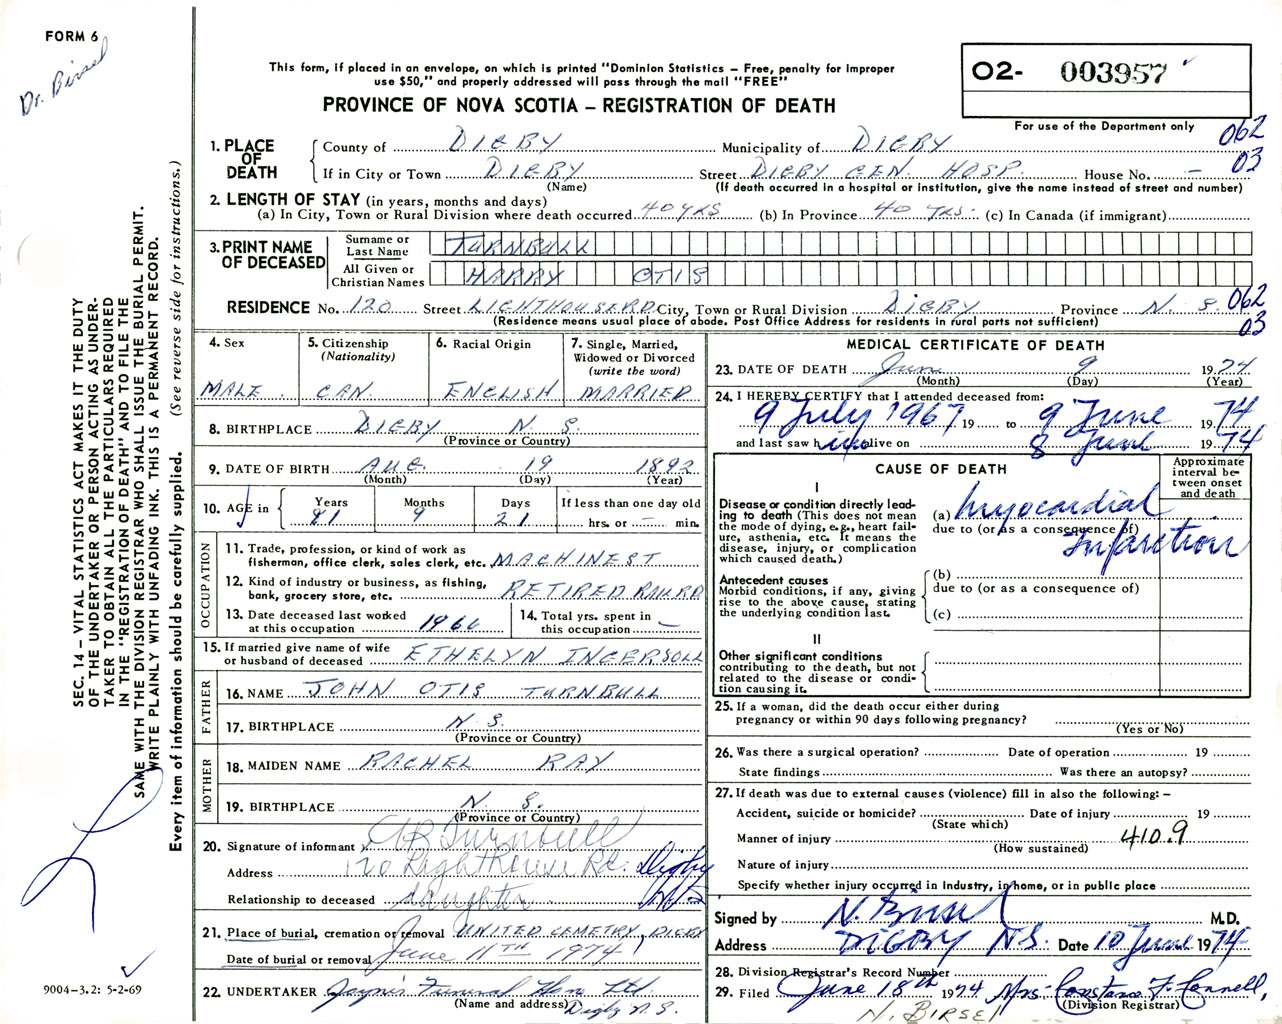 FORM 6
Dr. Birsel
This form, if placed in an envelope, on which is printed "Dominion Statistics – Free, penalty for improper
use $50," and properly addressed will pass through the mail "FREE"
PROVINCE OF NOVA SCOTIA – REGISTRATION OF DEATH
O2- 003957
For use of the Department only
062
03
1. PLACE OF DEATH
County of DIGBY Municipality of DIGBY
If in City or Town DIGBY Street DIGBY GEN. HOSP. House No. –
(Name) (If death occurred in a hospital or institution, give the name instead of street and number)
2. LENGTH OF STAY (in years, months and days)
(a) In City, Town or Rural Division where death occurred 40 YRS (b) In Province 40 YRS. (c) In Canada (if immigrant)
3. PRINT NAME OF DECEASED
Surname or Last Name TURNBULL
All Given or Christian Names HARRY OTIS
RESIDENCE No. 120 Street LIGHTHOUSE RD City, Town or Rural Division DIGBY Province N. S.
(Residence means usual place of abode. Post Office Address for residents in rural parts not sufficient)
062
03
4. Sex MALE
5. Citizenship (Nationality) CAN.
6. Racial Origin ENGLISH
7. Single, Married, Widowed or Divorced (write the word) MARRIED
8. BIRTHPLACE DIGBY N. S.
(Province or Country)
9. DATE OF BIRTH AUG. 19 1892
(Month) (Day) (Year)
10. AGE in Years 81 Months 9 Days 21 If less than one day old hrs. or – min.
OCCUPATION
11. Trade, profession, or kind of work as
fisherman, office clerk, sales clerk, etc. MACHINEST
12. Kind of industry or business, as fishing,
bank, grocery store, etc. RETIRED
13. Date deceased last worked
at this occupation 1966
14. Total yrs. spent in
this occupation –
15. If married give name of wife
or husband of deceased ETHELYN INGERSOLL
FATHER
16. NAME JOHN OTIS TURNBULL
17. BIRTHPLACE N. S.
(Province or Country)
MOTHER
18. MAIDEN NAME RACHEL RAY
19. BIRTHPLACE N. S.
(Province or Country)
20. Signature of informant Turnbull
Address 120 Lighthouse Rd. Digby
Relationship to deceased daughter
21. Place of burial, cremation or removal UNITED CEMETRY, DIGBY
Date of burial or removal June 11TH 1974
22. UNDERTAKER Jayne's Funeral Home Ltd.
(Name and address) Digby N. S.
MEDICAL CERTIFICATE OF DEATH
23. DATE OF DEATH June 9 1974
(Month) (Day) (Year)
24. I HEREBY CERTIFY that I attended deceased from:
9 July 1967 19 to 9 June 1974
and last saw h im alive on 8 June 1974
CAUSE OF DEATH
Approximate interval between onset and death
I
Disease or condition directly leading to death (This does not mean
the mode of dying, e.g., heart failure, asthenia, etc. It means the
disease, injury, or complication
which caused death.)
(a) Myocardial
due to (or as a consequence of)
Infarction
Antecedent causes
Morbid conditions, if any, giving
rise to the above cause, stating
the underlying condition last.
(b)
due to (or as a consequence of)
(c)
II
Other significant conditions
contributing to the death, but not
related to the disease or condition causing it.
25. If a woman, did the death occur either during
pregnancy or within 90 days following pregnancy?
(Yes or No)
26. Was there a surgical operation? Date of operation 19
State findings Was there an autopsy?
27. If death was due to external causes (violence) fill in also the following: –
Accident, suicide or homicide? Date of injury 19
(State which)
Manner of injury 410.9
(How sustained)
Nature of injury
Specify whether injury occurred in Industry, in home, or in public place
Signed by N. Birsel M.D.
Address DIGBY N.S. Date 10 June 1974
28. Division Registrar's Record Number
29. Filed June 18th 1974 Mrs. Constance F. Connell,
(Division Registrar)
N. BIRSEL
SEC. 14 – VITAL STATISTICS ACT MAKES IT THE DUTY
OF THE UNDERTAKER OR PERSON ACTING AS UNDER-
TAKER TO OBTAIN ALL THE PARTICULARS REQUIRED
IN THE "REGISTRATION OF DEATH" AND TO FILE THE
SAME WITH THE DIVISION REGISTRAR WHO SHALL ISSUE THE BURIAL PERMIT.
WRITE PLAINLY WITH UNFADING INK. THIS IS A PERMANENT RECORD.
Every item of information should be carefully supplied. (See reverse side for instructions.)
9004–3.2: 5-2-69